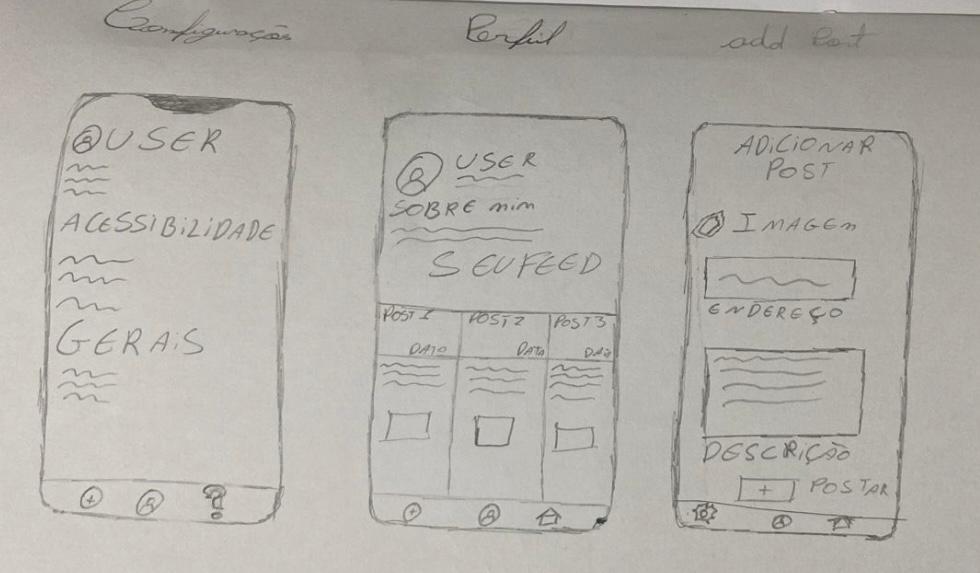 Configuração
Perfil
add Post
USER
ACESSIBILIDADE
GERAIS
USER
SOBRE mim
SEU FEED
POST 1
POST 2
POST 3
DATA
DATA
DATA
ADICIONAR
POST
IMAGEM
ENDEREÇO
DESCRIÇÃO
+ POSTAR